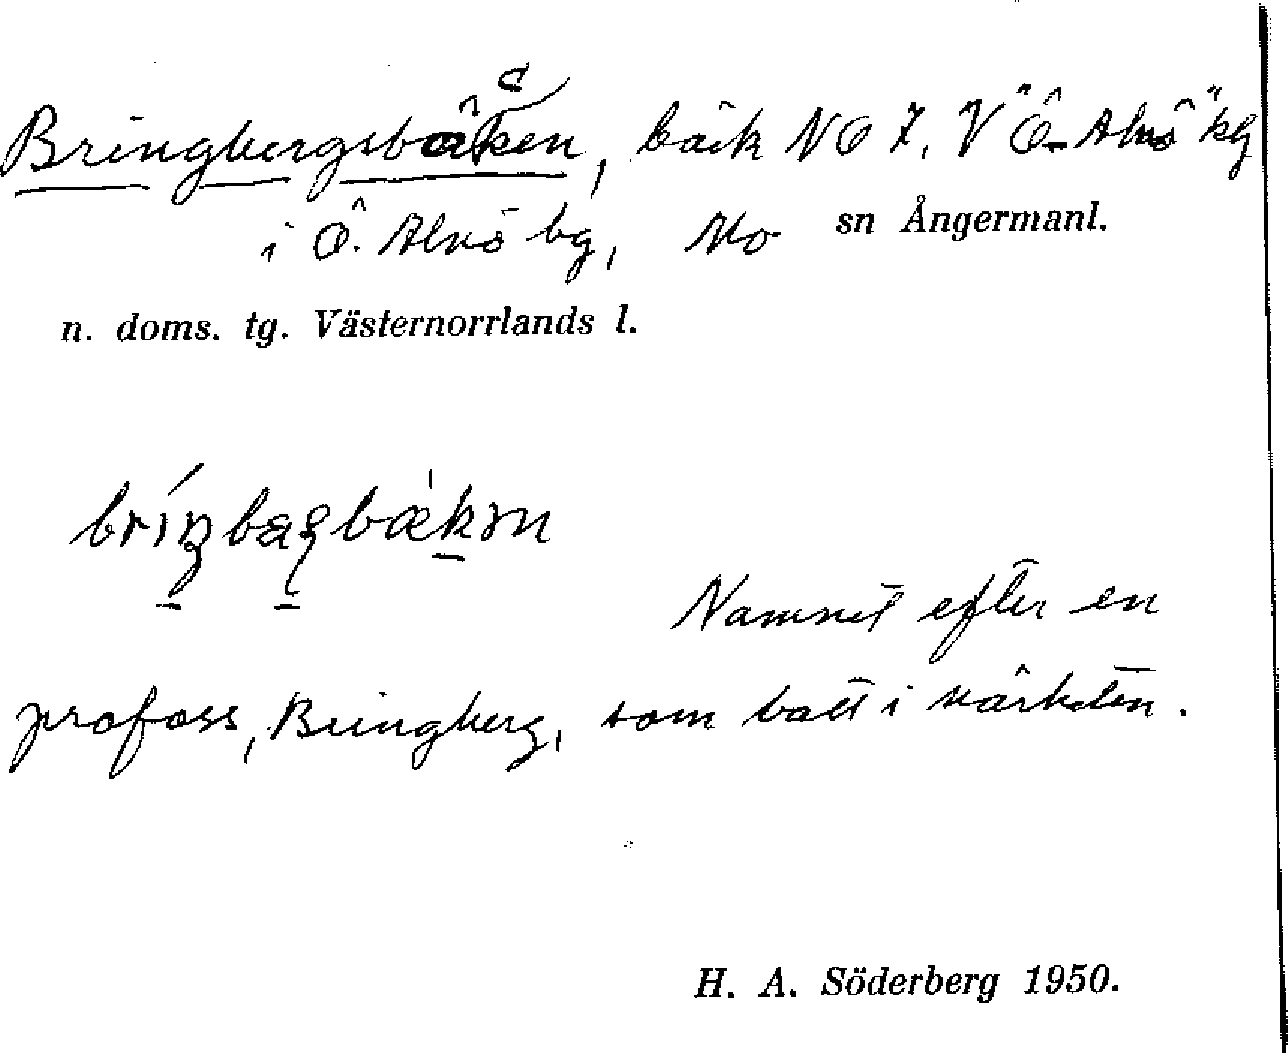 Bringbergsbäcken, bäck NO f. V "Ö. Alnö" kg
i Ö. Alnö bg, Mo sn Ångermanl.
n. doms. tg. Västernorrlands l.
Namnet efter en
profoss, Bringberg, som bott i närheten.
H. A. Söderberg 1950.